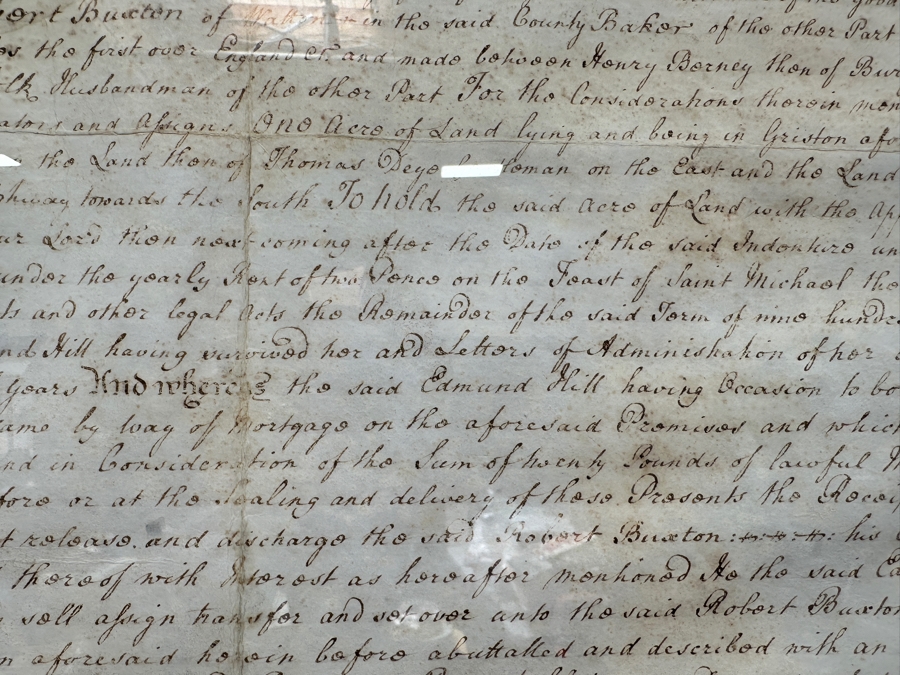 ert Buxton of Watton in the said County Baker of the other Part
the first over England &c. and made between Henry Berney then of
Husbandman of the other Part For the Considerations therein men
ators and Assigns One Acre of Land lying and being in Griston afo
the Land then of Thomas Deye on the East and the Land
hway towards the South To hold the said Acre of Land with the App
ur Lord then next coming after the Date of the said Indenture un
under the yearly Rent of two Pence on the Feast of Saint Michael the
ts and other legal Acts the Remainder of the said Term of nine hundre
nd Hill having survived her and Letters of Administration of her
years And whereas the said Edmund Hill having Occasion to bo
same by way of Mortgage on the aforesaid Premises and which
nd in Consideration of the Sum of twenty Pounds of lawful M
fore or at the Sealing and delivery of these Presents the Receip
t release and discharge the said Robert Buxton his
thereof with Interest as hereafter mentioned He the said Ed
sell assign transfer and set over unto the said Robert Buxton
n aforesaid herein before abuttalled and described with an